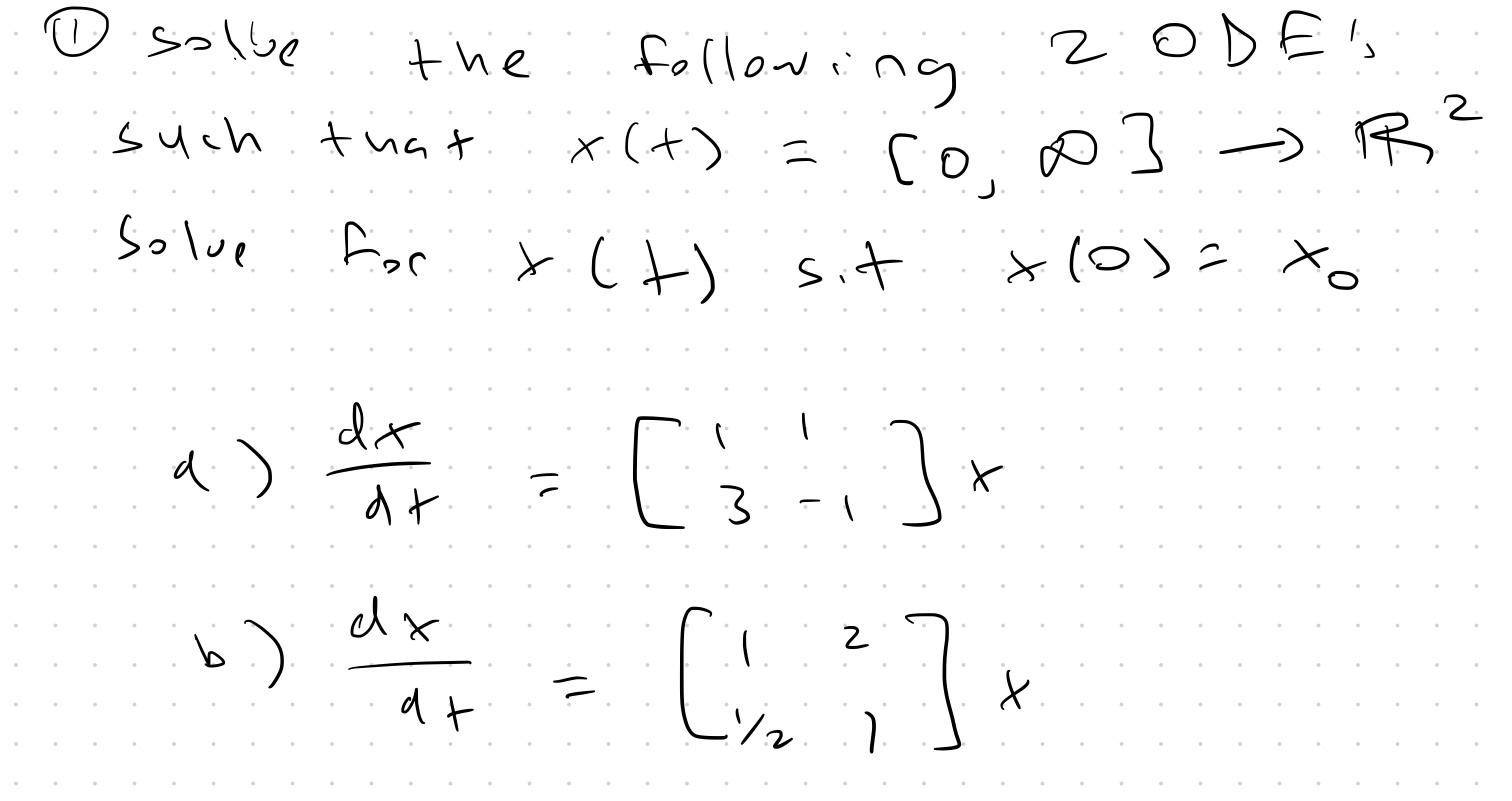 ① solve the following 2 ODE's
such that x(t) = [0, ∞] → ℝ²
solve for x(t) s.t x(0) = x₀
a) dx/dt = [1 1; 3 -1] x
b) dx/dt = [1 2; 1/2 1] x